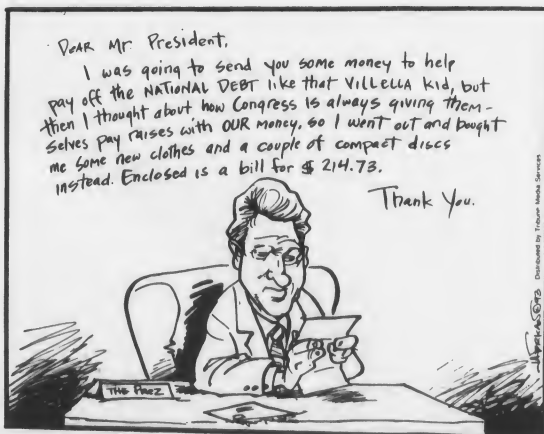 DEAR Mr. President,
I was going to send you some money to help
pay off the NATIONAL DEBT like that VILLELLA kid, but
then I thought about how Congress is always giving them-
selves pay raises with OUR money, so I went out and bought
me some new clothes and a couple of compact discs
instead. Enclosed is a bill for $ 214.73.
Thank You.
THE PREZ
©93 Distributed by Tribune Media Services